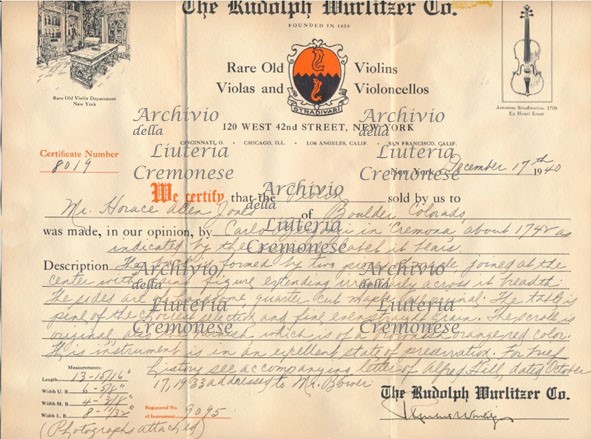 The Rudolph Wurlitzer Co.
FOUNDED IN 1856
Rare Old Violins
Violas and Violoncellos
STRADIVARI
Rare Old Violin Department
New York
Antonius Stradivarius, 1709
Ex Heart Ernst
120 WEST 42nd STREET, NEW YORK
CINCINNATI, O. • CHICAGO, ILL. • LOS ANGELES, CALIF. • SAN FRANCISCO, CALIF.
Archivio
della
Liuteria
Cremonese
Archivio
della
Liuteria
Cremonese
Certificate Number
8019
New York, December 17th 1940
We certify that the Violin sold by us to
Archivio
della
Liuteria
Cremonese
Mr. Horace Allen Jones of Boulder Colorado,
was made, in our opinion, by Carlo in Cremona about 1748 as
indicated by the label it bears
Description The back is formed by two pieces of maple joined at the
center with figure extending across its breadth
The sides are of quarter cut maple The table is
pine of the choicest selection and fine even grain. The scroll is
original and varnish, which is of a orange red color.
This instrument is in an excellent state of preservation. For brief
history see accompanying letter of Alfred Hill, dated October
17, 1933 addressed to Mr. Bower
Archivio
della
Liuteria
Cremonese
Archivio
della
Liuteria
Cremonese
Measurements:
Length 13-15/16"
Width U. B.
Width M. B.
Width L. B.
Registered No.
of Instrument 9095
(Photographs attached)
The Rudolph Wurlitzer Co.